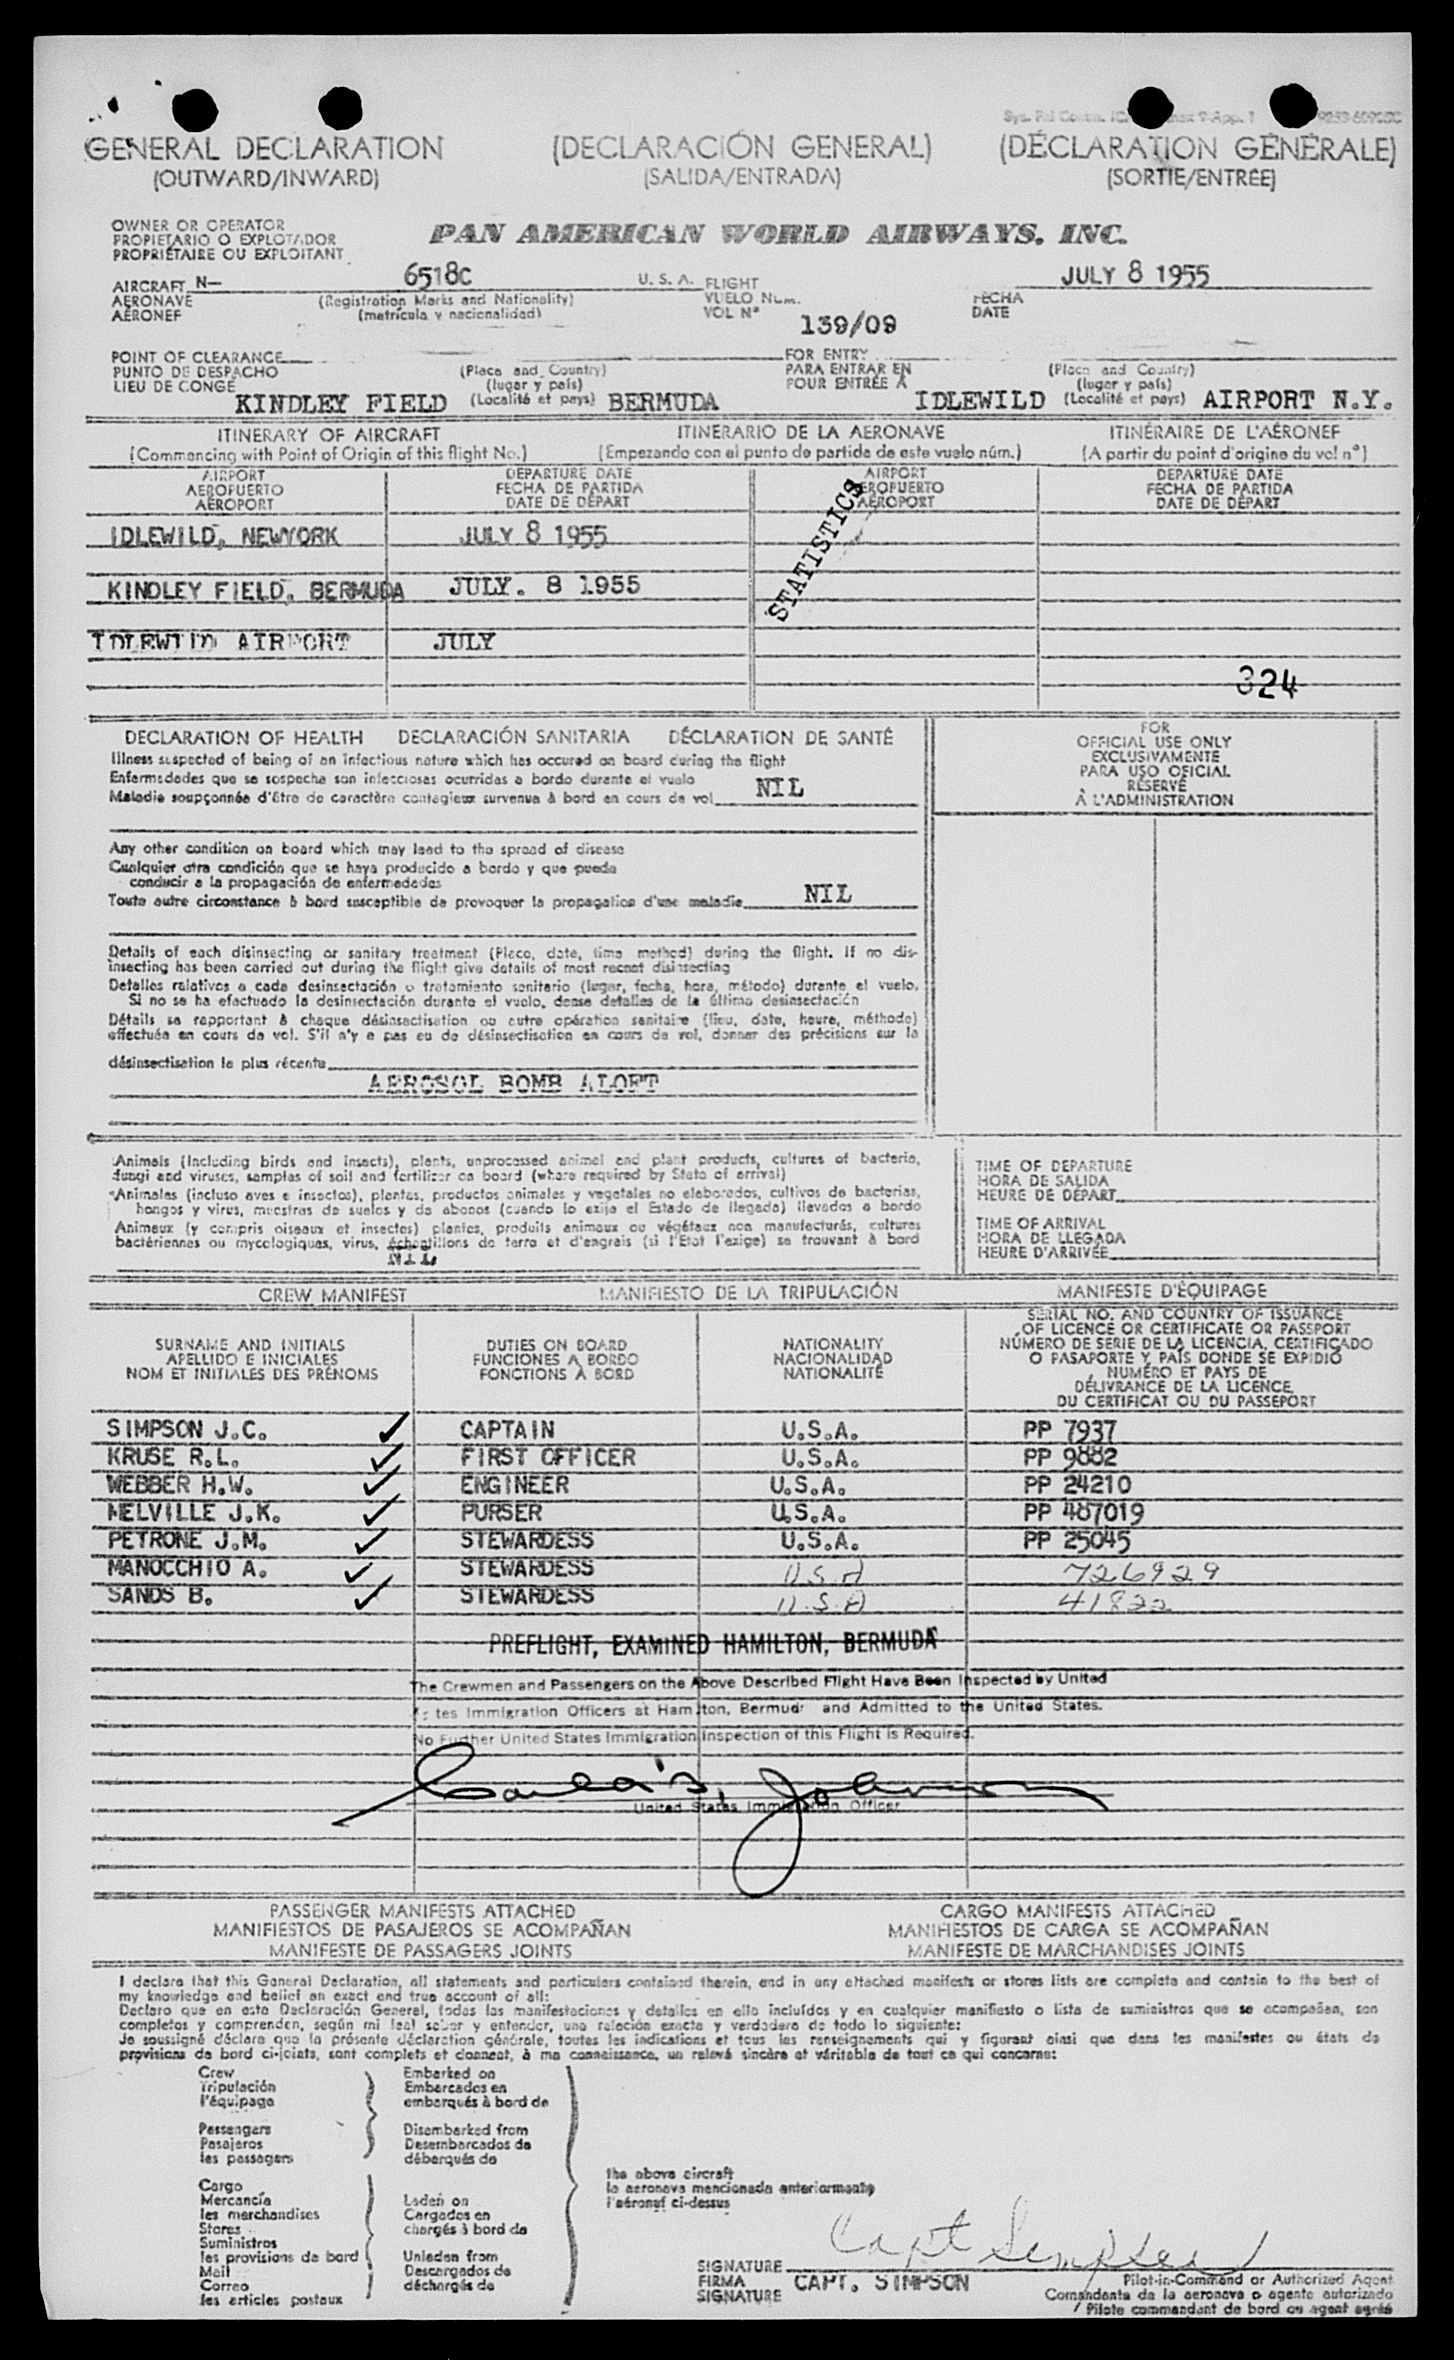 GENERAL DECLARATION (DECLARACIÓN GENERAL) (DÉCLARATION GÉNÉRALE)
(OUTWARD/INWARD) (SALIDA/ENTRADA) (SORTIE/ENTRÉE)
OWNER OR OPERATOR
PROPIETARIO O EXPLOTADOR
PROPRIÉTAIRE OU EXPLOITANT
PAN AMERICAN WORLD AIRWAYS, INC.
AIRCRAFT N— 6518C U. S. A. FLIGHT JULY 8 1955
AERONAVE (Registration Marks and Nationality) VUELO Num. FECHA
AÉRONEF (matrícula y nacionalidad) VOL Nº 139/09 DATE
POINT OF CLEARANCE FOR ENTRY
PUNTO DE DESPACHO (Place and Country) PARA ENTRAR EN (Place and Country)
LIEU DE CONGÉ (lugar y país) POUR ENTRÉE À (lugar y país)
KINDLEY FIELD (Localité et pays) BERMUDA IDLEWILD (Localité et pays) AIRPORT N.Y.
ITINERARY OF AIRCRAFT ITINERARIO DE LA AERONAVE ITINÉRAIRE DE L'AÉRONEF
(Commencing with Point of Origin of this flight No.) (Empezando con el punto de partida de este vuelo núm.) (A partir du point d'origine du vol nº)
AIRPORT DEPARTURE DATE AIRPORT DEPARTURE DATE
AEROPUERTO FECHA DE PARTIDA AEROPUERTO FECHA DE PARTIDA
AÉROPORT DATE DE DÉPART AÉROPORT DATE DE DÉPART
STATISTICS
IDLEWILD, NEWYORK JULY 8 1955
KINDLEY FIELD, BERMUDA JULY. 8 1955
IDLEWILD AIRPORT JULY
324
DECLARATION OF HEALTH DECLARACIÓN SANITARIA DÉCLARATION DE SANTÉ
Illness suspected of being of an infectious nature which has occured on board during the flight
Enfermedades que se sospecha son infecciosas ocurridas a bordo durante el vuelo
Maladie soupçonnée d'être de caractère contagieux survenue à bord en cours de vol NIL
FOR
OFFICIAL USE ONLY
EXCLUSIVAMENTE
PARA USO OFICIAL
RÉSERVÉ
À L'ADMINISTRATION
Any other condition on board which may lead to the spread of disease
Cualquier otra condición que se haya producido a bordo y que pueda
conducir a la propagación de enfermedades
Toute autre circonstance à bord susceptible de provoquer la propagation d'une maladie NIL
Details of each disinsecting or sanitary treatment (Place, date, time method) during the flight. If no dis-
insecting has been carried out during the flight give details of most recent disinsecting
Detalles relativos a cada desinsectación o tratamiento sanitario (lugar, fecha, hora, método) durante el vuelo.
Si no se ha efectuado la desinsectación durante el vuelo, dense detalles de la última desinsectación
Détails se rapportant à chaque désinsectisation ou autre opération sanitaire (lieu, date, heure, méthode)
effectuée en cours de vol. S'il n'y a pas eu de désinsectisation en cours de vol, donner des précisions sur la
désinsectisation la plus récente
AEROSOL BOMB ALOFT
Animals (Including birds and insects), plants, unprocessed animal and plant products, cultures of bacteria,
fungi and viruses, samples of soil and fertilizer on board (where required by State of arrival)
Animales (incluso aves e insectos), plantas, productos animales y vegetales no elaborados, cultivos de bacterias,
hongos y virus, muestras de suelos y de abonos (cuando lo exija el Estado de llegada) llevados a bordo
Animaux (y compris oiseaux et insectes) plantes, produits animaux ou végétaux non manufacturés, cultures
bactériennes ou mycologiques, virus, échantillons de terre et d'engrais (si l'État l'exige) se trouvant à bord
NIL
TIME OF DEPARTURE
HORA DE SALIDA
HEURE DE DÉPART
TIME OF ARRIVAL
HORA DE LLEGADA
HEURE D'ARRIVÉE
CREW MANIFEST MANIFIESTO DE LA TRIPULACIÓN MANIFESTE D'ÉQUIPAGE
SURNAME AND INITIALS
APELLIDO E INICIALES
NOM ET INITIALES DES PRÉNOMS
DUTIES ON BOARD
FUNCIONES A BORDO
FONCTIONS À BORD
NATIONALITY
NACIONALIDAD
NATIONALITÉ
SERIAL NO. AND COUNTRY OF ISSUANCE
OF LICENCE OR CERTIFICATE OR PASSPORT
NÚMERO DE SERIE DE LA LICENCIA, CERTIFICADO
O PASAPORTE Y PAÍS DONDE SE EXPIDIÓ
NUMÉRO ET PAYS DE
DÉLIVRANCE DE LA LICENCE,
DU CERTIFICAT OU DU PASSEPORT
SIMPSON J.C. CAPTAIN U.S.A. PP 7937
KRUSE R.L. FIRST OFFICER U.S.A. PP 9882
WEBBER H.W. ENGINEER U.S.A. PP 24210
MELVILLE J.K. PURSER U.S.A. PP 487019
PETRONE J.M. STEWARDESS U.S.A. PP 25045
MANOCCHIO A. STEWARDESS U.S.A 726929
SANDS B. STEWARDESS U.S.A 41822
PREFLIGHT, EXAMINED HAMILTON, BERMUDA
The Crewmen and Passengers on the Above Described Flight Have Been Inspected by United
tes Immigration Officers at Hamilton, Bermuda and Admitted to the United States.
No Further United States Immigration Inspection of this Flight is Required.
Johnson
United States Immigration Officer
PASSENGER MANIFESTS ATTACHED CARGO MANIFESTS ATTACHED
MANIFIESTOS DE PASAJEROS SE ACOMPAÑAN MANIFIESTOS DE CARGA SE ACOMPAÑAN
MANIFESTE DE PASSAGERS JOINTS MANIFESTE DE MARCHANDISES JOINTS
I declare that this General Declaration, all statements and particulars contained therein, and in any attached manifests or stores lists are complete and contain to the best of
my knowledge and belief an exact and true account of all:
Declaro que en esta Declaración General, todas las manifestaciones y detalles en ella incluídos y en cualquier manifiesto o lista de suministros que se acompañan, son
completos y comprenden, según mi leal saber y entender, una relación exacta y verdadera de todo lo siguiente:
Je soussigné déclare que la présente déclaration générale, toutes les indications et tous les renseignements qui y figurent ainsi que dans les manifestes ou états de
provisions de bord ci-joints, sont complets et donnent, à ma connaissance, un relevé sincère et véritable de tout ce qui concerne:
Crew
Tripulación
l'équipage
Passengers
Pasajeros
les passagers
Cargo
Mercancía
les marchandises
Stores
Suministros
les provisions de bord
Mail
Correo
les articles postaux
Embarked on
Embarcados en
embarqués à bord de
Disembarked from
Desembarcados de
débarqués de
Laden on
Cargados en
chargés à bord de
Unladen from
Descargados de
déchargés de
the above aircraft
la aeronave mencionada anteriormente
l'aéronef ci-dessus
Capt Simpson
SIGNATURE
FIRMA CAPT. SIMPSON
SIGNATURE
Pilot-in-Command or Authorized Agent
Comandante de la aeronave o agente autorizado
Pilote commandant de bord ou agent agréé